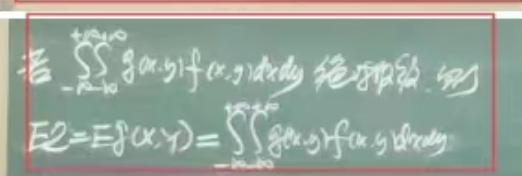 若 ∫_{-∞}^{+∞}∫_{-∞}^{+∞} g(x,y)f(x,y)dxdy 绝对收敛,则
EZ=Eg(X,Y)=∫_{-∞}^{+∞}∫_{-∞}^{+∞} g(x,y)f(x,y)dxdy